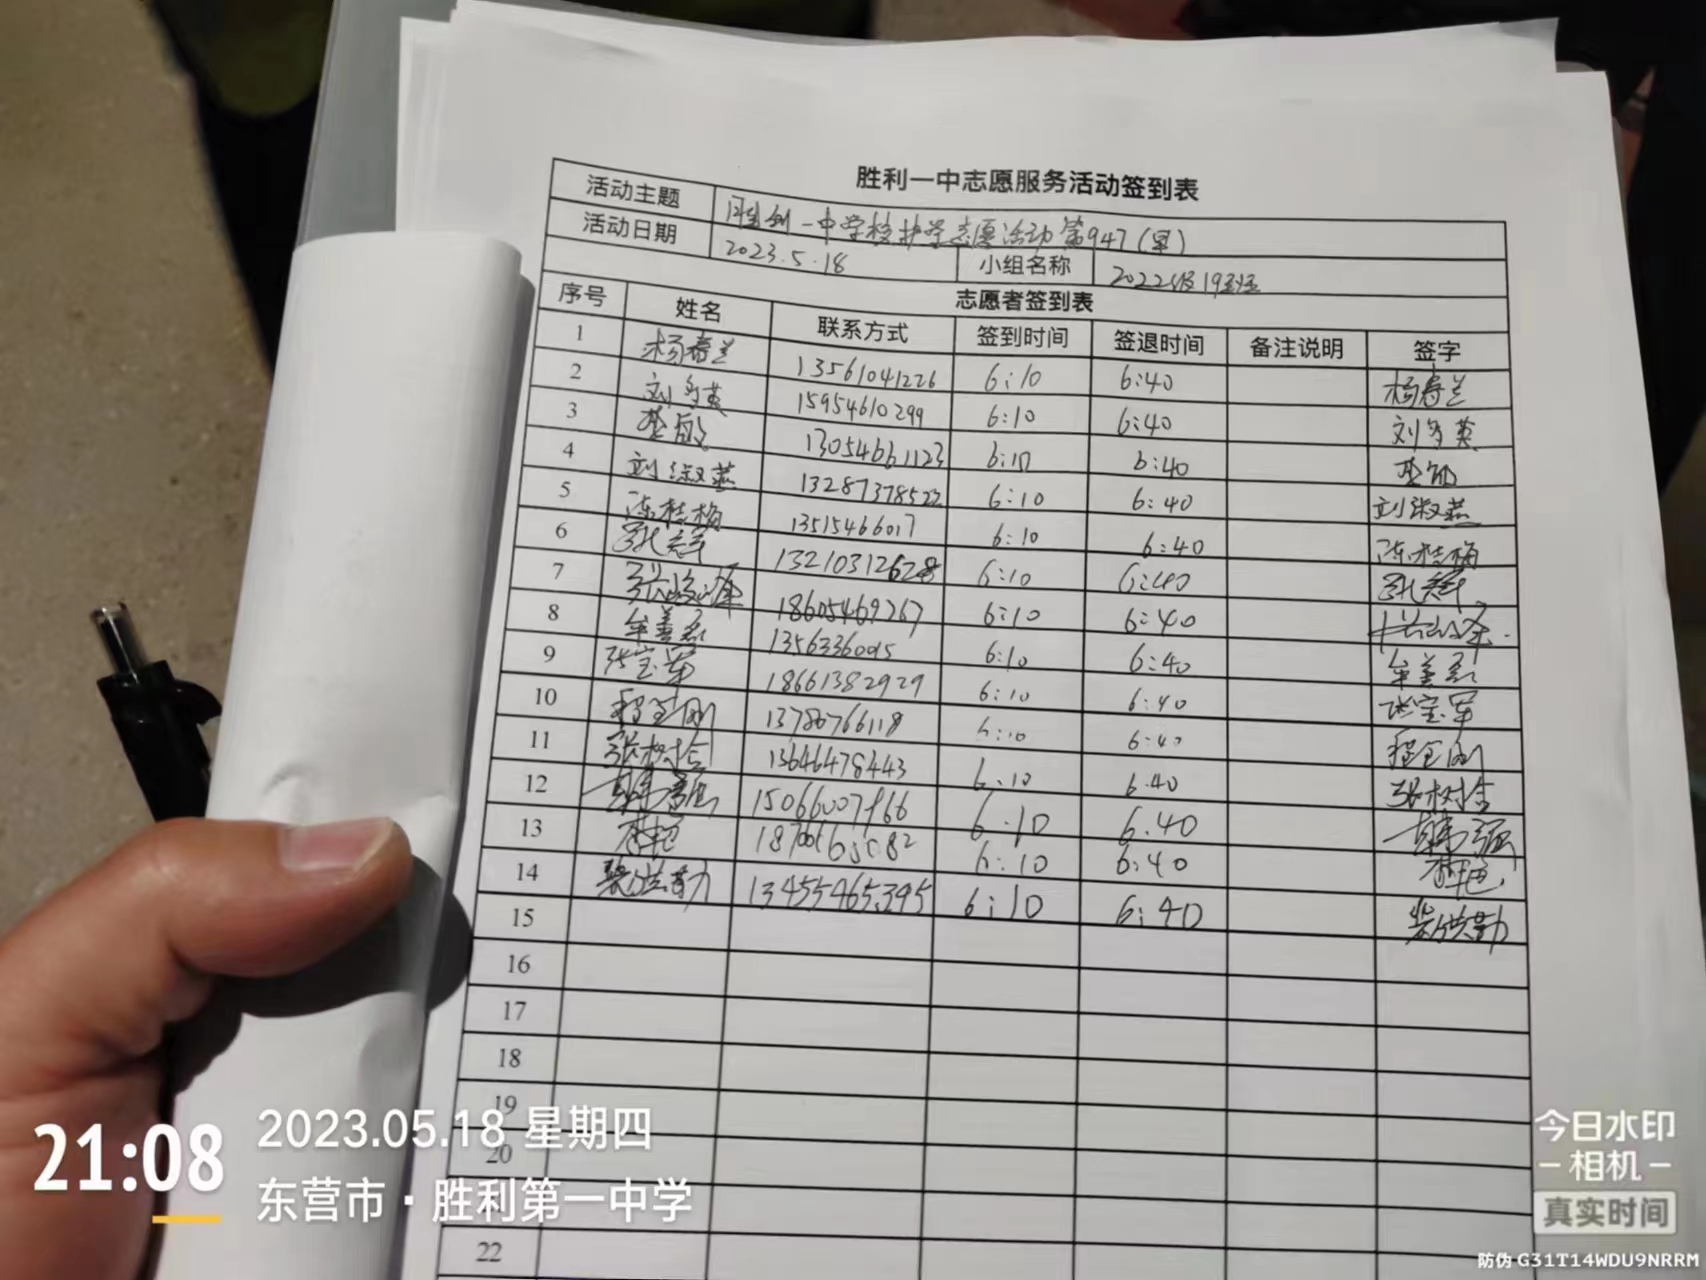 胜利一中志愿服务活动签到表
活动主题 胜利一中学校护学志愿活动第947(早)
活动日期 2023.5.18 小组名称 2022级19班
志愿者签到表
序号 姓名 联系方式 签到时间 签退时间 备注说明 签字
1 杨春兰 13561041226 6:10 6:40 杨春兰
2 刘冬英 15954610299 6:10 6:40 刘冬英
3 13054661123 6:10 6:40
4 刘淑燕 13287378522 6:10 6:40 刘淑燕
5 陈桂梅 13515466017 6:10 6:40 陈桂梅
6 13210312628 6:10 6:40
7 18605469267 6:10 6:40
8 牟善磊 6:10 6:40 牟善磊
9 张宝军 18661382929 6:10 6:40 张宝军
10 程金刚 13780766118 6:10 6:40 程金刚
11 张树合 13646478443 6:10 6:40 张树合
12 6:10 6:40
13 6:10 6:40
14 13455465395 6:10 6:40
15
16
17
18
19
20
22
21:08
2023.05.18 星期四
东营市·胜利第一中学
今日水印
-相机-
真实时间
防伪 G31T14WDU9NRRM